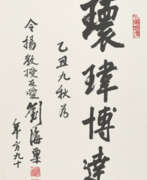 環瑋博達
乙丑九秋為
令揚教授友愛
劉海粟
年方九十